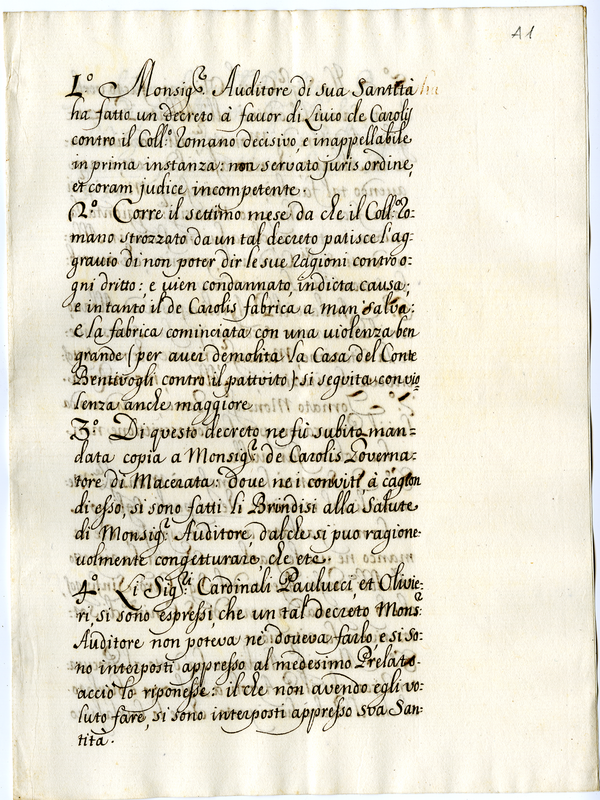 A1
1.º Monsig.r Auditore di sua Santità
ha fatto un decreto à favor di Livio de Carolis
contro il Coll.º Romano decisivo, e inappellabile
in prima instanza: non servato juris ordine,
et coram judice incompetente.
2.º Corre il settimo mese da che il Coll.º Ro:
mano strozzato da un tal decreto patisce l'ag:
gravio di non poter dir le sue ragioni contro o:
gni dritto: e vien condannato, indicta causa;
e intanto il de Carolis fabrica a man salva:
e la fabrica cominciata con una violenza ben
grande (per aver demolita la Casa del Conte
Bentivogli contro il pattvito) si seguita con vio
lenza anche maggiore
3.º Di questo decreto ne fù subito man=
data copia a Monsig.r de Carolis Governa:
tore di Macerata: dove ne i conviti, à cagion
di esso, si sono fatti li Brindisi alla Salute
di Monsig.r Auditore, dal che si puo ragione:
volmente congetturare, che etc.
4.º Li Sig.ri Cardinali Paulucci, et Olivie:
ri, si sono espressi, che un tal decreto Mons.r
Auditore non poteva ne doveva farlo, e si so:
no interposti appresso al medesimo Prelato,
acciò lo riponesse: il che non avendo egli vo:
luto fare, si sono interposti appresso sva San:
tità.